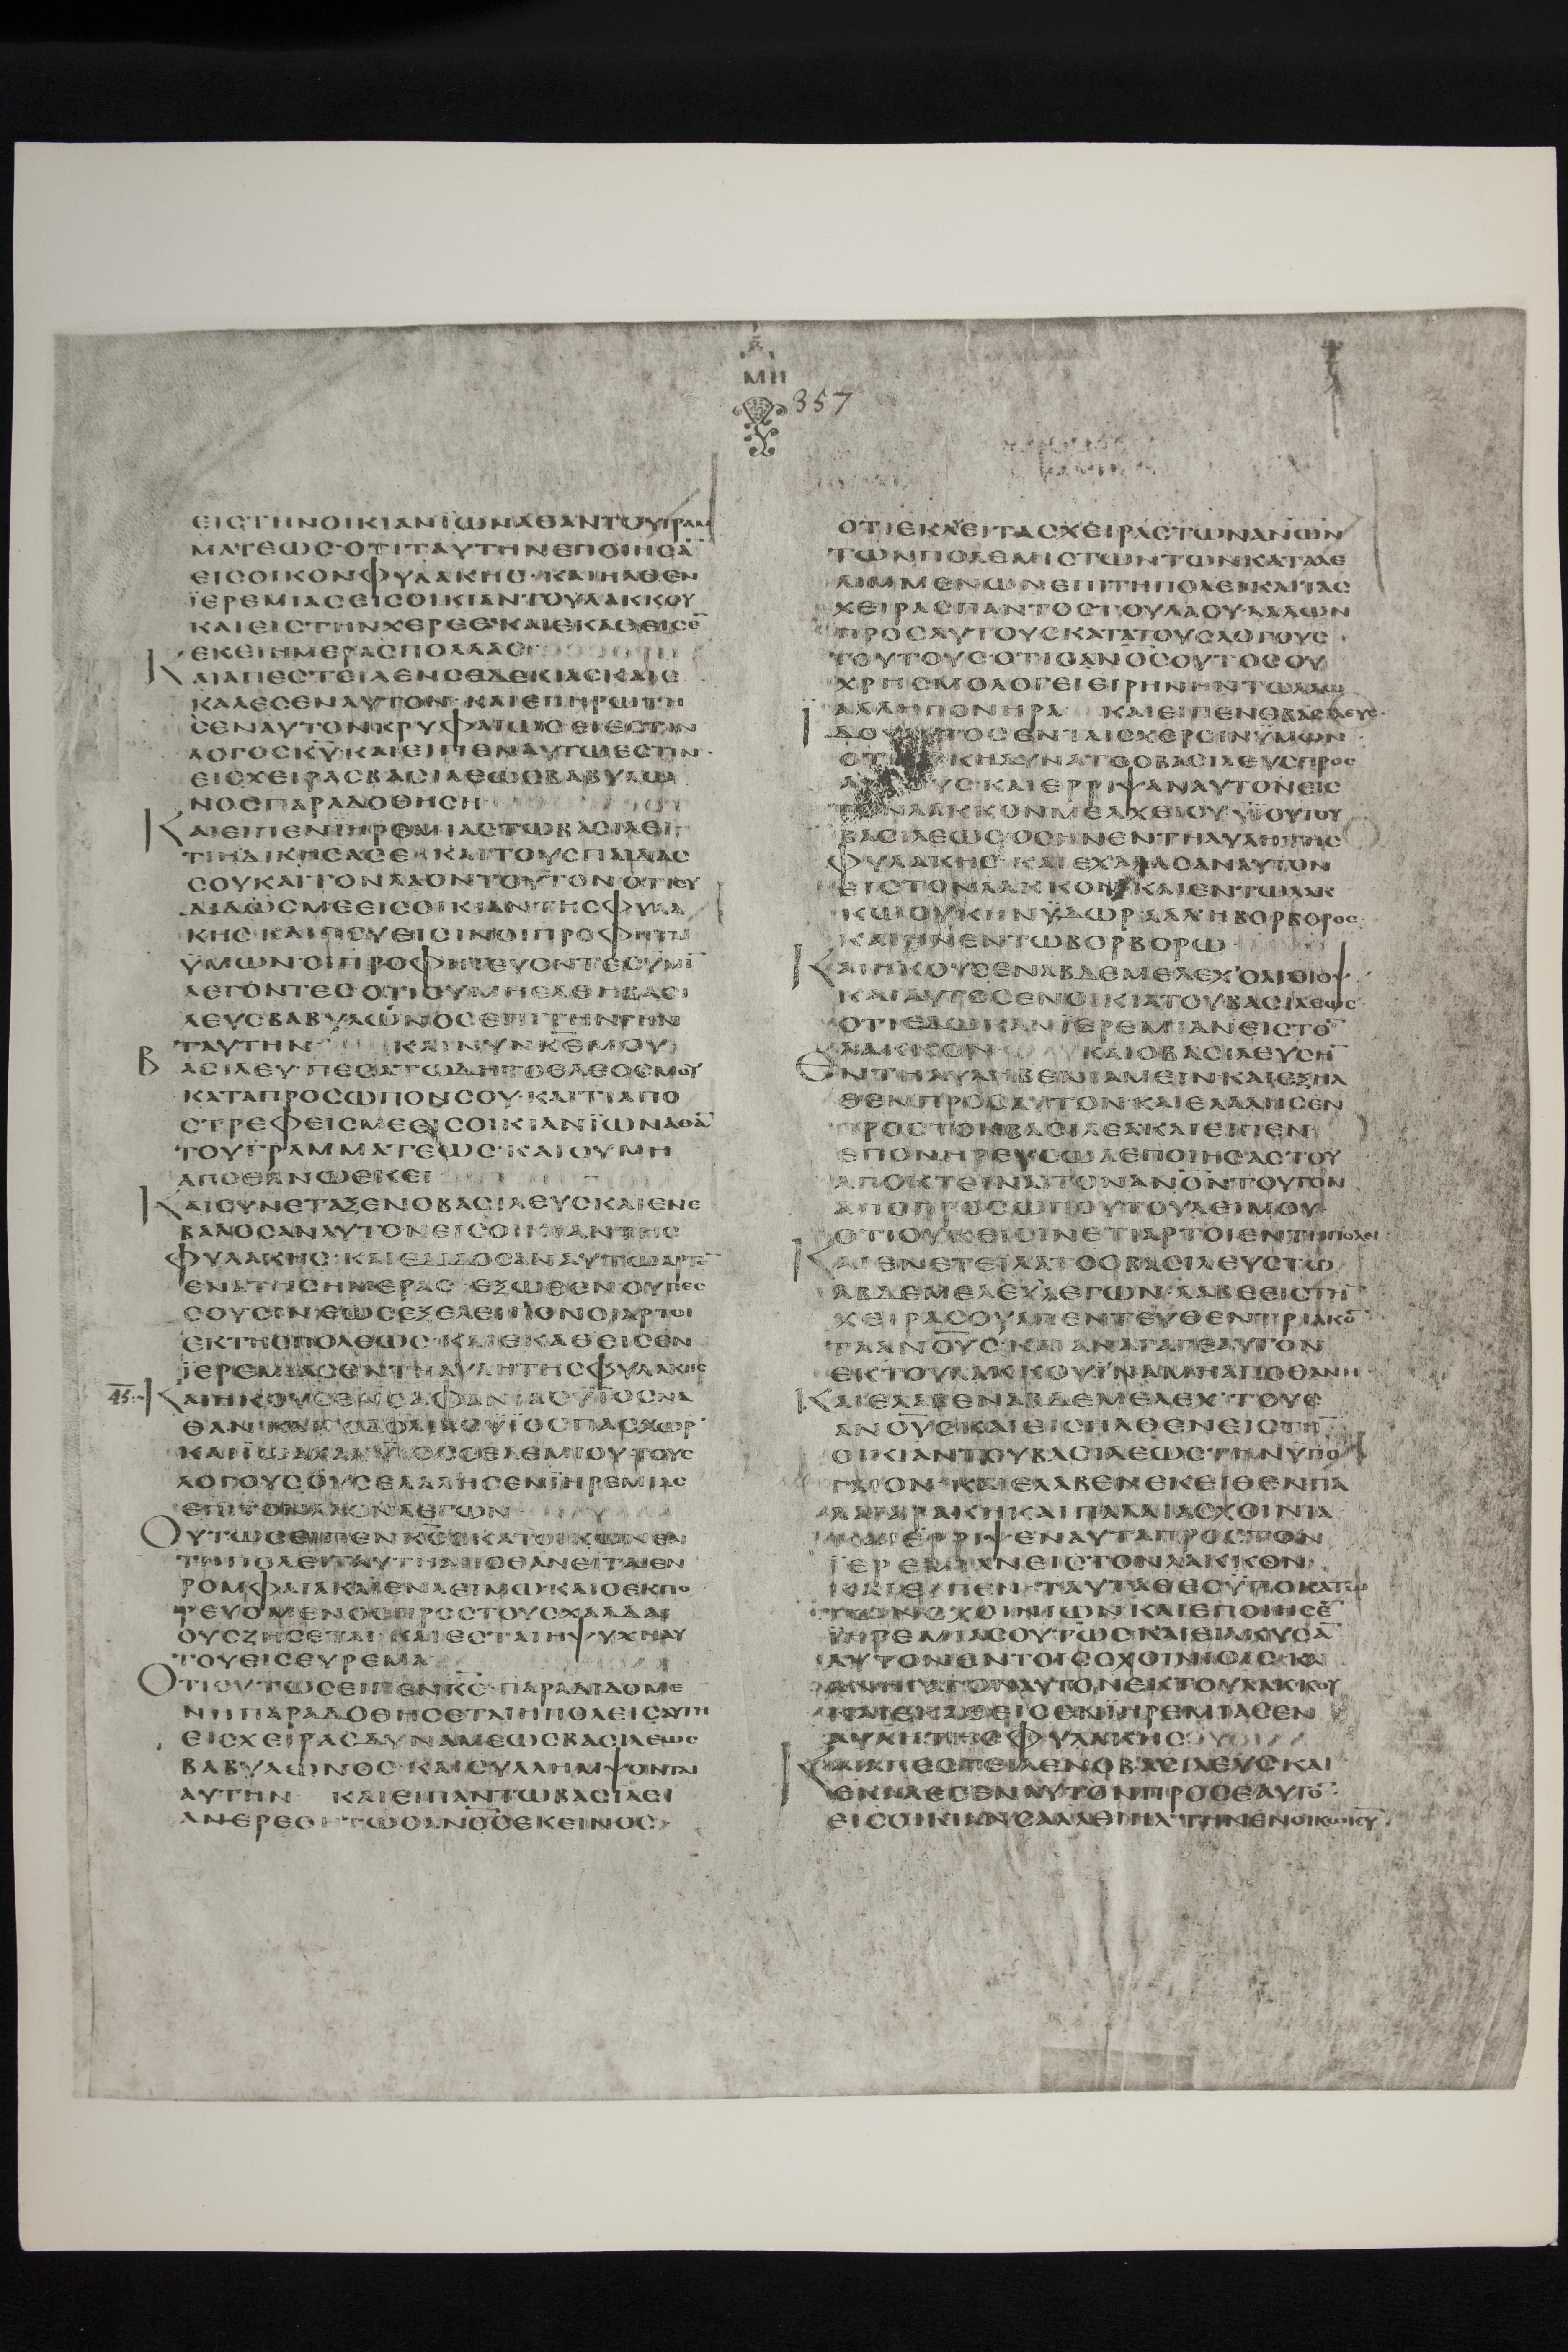 ΜΗ
357
ΕΙΣΤΗΝΟΙΚΙΑΝΙΩΝΑΘΑΝΤΟΥΓΡΑΜ
ΜΑΤΕΩΣ·ΟΤΙΤΑΥΤΗΝΕΠΟΙΗΣΑ̅
ΕΙΣΟΙΚΟΝΦΥΛΑΚΗΣ·ΚΑΙΗΛΘΕΝ
ΪΕΡΕΜΙΑΣΕΙΣΟΙΚΙΑΝΤΟΥΛΑΚΚΟΥ
ΚΑΙΕΙΣΤΗΝΧΕΡΕΘ·ΚΑΙΕΚΑΘΕΙΣΕ̅
ΕΚΕΙΗΜΕΡΑΣΠΟΛΛΑΣ
ΚΑΙΑΠΕΣΤΕΙΛΕΝΣΕΔΕΚΙΑΣΚΑΙΕ
ΚΑΛΕΣΕΝΑΥΤΟΝ·ΚΑΙΕΠΗΡΩΤΗ
ΣΕΝΑΥΤΟΝΚΡΥΦΑΙΩΣΕΙΕΣΤΙΝ
ΛΟΓΟΣΚ̅Υ̅·ΚΑΙΕΙΠΕΝΑΥΤΩΕΣΤΙΝ·
ΕΙΣΧΕΙΡΑΣΒΑΣΙΛΕΩΣΒΑΒΥΛΩ
ΝΟΣΠΑΡΑΔΟΘΗΣΗ
ΚΑΙΕΙΠΕΝΪΗΡΕΜΙΑΣΤΩΒΑΣΙΛΕΙ·
ΤΙΗΔΙΚΗΣΑΣΕ·ΚΑΙΤΟΥΣΠΑΙΔΑΣ
ΣΟΥΚΑΙΤΟΝΛΑΟΝΤΟΥΤΟΝΟΤΙΣΥ
ΔΙΔΩΣΜΕΕΙΣΟΙΚΙΑΝΤΗΣΦΥΛΑ
ΚΗΣ·ΚΑΙΠΟΥΕΙΣΙΝΟΙΠΡΟΦΗΤΑΙ
ΫΜΩΝΟΙΠΡΟΦΗΤΕΥΟΝΤΕΣΥΜΙ̅
ΛΕΓΟΝΤΕΣΟΤΙΟΥΜΗΕΛΘΗΒΑΣΙ
ΛΕΥΣΒΑΒΥΛΩΝΟΣΕΠΙΤΗΝΓΗΝ
ΤΑΥΤΗΝ ΚΑΙΝΥΝΚ̅Ε̅ΜΟΥ
ΒΑΣΙΛΕΥ·ΠΕΣΑΤΩΔΗΤΟΕΛΕΟΣΜΟΥ
ΚΑΤΑΠΡΟΣΩΠΟΝΣΟΥ·ΚΑΙΤΙΑΠΟ
ΣΤΡΕΦΕΙΣΜΕΕΙΣΟΙΚΙΑΝΪΩΝΑΘΑ̅
ΤΟΥΓΡΑΜΜΑΤΕΩΣ·ΚΑΙΟΥΜΗ
ΑΠΟΘΑΝΩΕΚΕΙ
ΚΑΙΣΥΝΕΤΑΞΕΝΟΒΑΣΙΛΕΥΣΚΑΙΕΝΕ
ΒΑΛΟΣΑΝΑΥΤΟΝΕΙΣΟΙΚΙΑΝΤΗΣ
ΦΥΛΑΚΗΣ·ΚΑΙΕΔΙΔΟΣΑΝΑΥΤΩΑΡΤΟ̅
ΕΝΑΤΗΣΗΜΕΡΑΣ·ΕΞΩΘΕΝΟΥΠΕΣ
ΣΟΥΣΙΝΕΩΣΕΞΕΛΕΙΠΟΝΟΙΑΡΤΟΙ
ΕΚΤΗΣΠΟΛΕΩΣ·ΚΑΙΕΚΑΘΕΙΣΕΝ
ΪΕΡΕΜΙΑΣΕΝΤΗΑΥΛΗΤΗΣΦΥΛΑΚΗΣ
45 ΚΑΙΗΚΟΥΣΕΝΣΑΦΑΝΙΑΣΥΪΟΣΝΑ
ΘΑΝ ΥΙΟΣΠΑΣΧΩΡ·
ΚΑΙΪΩΑΧΑΛΫΙΟΣΣΕΛΕΜΙΟΥΤΟΥΣ
ΛΟΓΟΥΣΟΥΣΕΛΑΛΗΣΕΝΪΗΡΕΜΙΑΣ
ΕΠΙΤΟΝΛΑΟΝΛΕΓΩΝ
ΟΥΤΩΣΕΙΠΕΝΚ̅Σ̅ΟΚΑΤΟΙΚΩΝΕΝ
ΤΗΠΟΛΕΙΤΑΥΤΗΑΠΟΘΑΝΕΙΤΑΙΕΝ
ΡΟΜΦΑΙΑΚΑΙΕΝΛΕΙΜΩ·ΚΑΙΟΕΚΠΟ
ΡΕΥΟΜΕΝΟΣΠΡΟΣΤΟΥΣΧΑΛΔΑΙ
ΟΥΣΖΗΣΕΤΑΙ·ΚΑΙΕΣΤΑΙΗΨΥΧΗΑΥ
ΤΟΥΕΙΣΕΥΡΕΜΑ
ΟΤΙΟΥΤΩΣΕΙΠΕΝΚ̅Σ̅·ΠΑΡΑΔΙΔΟΜΕ
ΝΗΠΑΡΑΔΟΘΗΣΕΤΑΙΗΠΟΛΕΙΣΑΥΤΗ
ΕΙΣΧΕΙΡΑΣΔΥΝΑΜΕΩΣΒΑΣΙΛΕΩΣ
ΒΑΒΥΛΩΝΟΣ·ΚΑΙΣΥΛΛΗΜΨΟΝΤΑΙ
ΑΥΤΗΝ ΚΑΙΕΙΠΑΝΤΩΒΑΣΙΛΕΙ
ΑΝΕΡΕΘΗΤΩΟΑΝ̅Ο̅Σ̅ΕΚΕΙΝΟΣ·
ΟΤΙΕΚΛΥΕΙΤΑΣΧΕΙΡΑΣΤΩΝΑΝ̅Ω̅Ν̅
ΤΩΝΠΟΛΕΜΙΣΤΩΝΤΩΝΚΑΤΑΛΕ
ΛΙΜΜΕΝΩΝΕΝΤΗΠΟΛΕΙΚΑΙΤΑΣ
ΧΕΙΡΑΣΠΑΝΤΟΣΤΟΥΛΑΟΥ·ΛΑΛΩΝ
ΠΡΟΣΑΥΤΟΥΣΚΑΤΑΤΟΥΣΛΟΓΟΥΣ
ΤΟΥΤΟΥΣ·ΟΤΙΟΑΝ̅Ο̅Σ̅ΟΥΤΟΣΟΥ
ΧΡΗΣΜΟΛΟΓΕΙΕΙΡΗΝΗΝΤΩΛΑΩ
ΑΛΛΗΠΟΝΗΡΑ ΚΑΙΕΙΠΕΝΟΒΑΣΙΛΕΥΣ·
ΙΔΟΥΑΥΤΟΣΕΝΤΑΙΣΧΕΡΣΙΝΫΜΩΝ·
ΟΤΙ ΚΗΔΥΝΑΤΟΟΒΑΣΙΛΕΥΣΠΡΟΣ
ΑΥΤΟΥΣ·ΚΑΙΕΡΡΙΨΑΝΑΥΤΟΝΕΙΣ
ΤΟΝΛΑΚΚΟΝΜΕΛΧΕΙΟΥΫΪΟΥΤΟΥ
ΒΑΣΙΛΕΩΣ·ΟΣΗΝΕΝΤΗΑΥΛΗΤΗΣ
ΦΥΛΑΚΗΣ·ΚΑΙΕΧΑΛΑΣΑΝΑΥΤΟΝ
ΕΙΣΤΟΝΛΑΚΚΟΝ·ΚΑΙΕΝΤΩΛΑΚ
ΚΩΟΥΚΗΝΫΔΩΡΑΛΛΗΒΟΡΒΟΡΟΣ
ΚΑΙΗΝΕΝΤΩΒΟΡΒΟΡΩ
ΚΑΙΗΚΟΥΣΕΝΑΒΔΕΜΕΛΕΧΟΑΙΘΙΟΨ·
ΚΑΙΑΥΤΟΣΕΝΟΙΚΙΑΤΟΥΒΑΣΙΛΕΩΣ
ΟΤΙΕΔΩΚΑΝΪΕΡΕΜΙΑΝΕΙΣΤΟ̅
ΛΑΚΚΟΝ ΚΑΙΟΒΑΣΙΛΕΥΣΗ̅
ΕΝΤΗΑΥΛΗΒΕΝΙΑΜΕΙΝΚΑΙΕΞΗΛ
ΘΕΝΠΡΟΣΑΥΤΟΝ·ΚΑΙΕΛΑΛΗΣΕΝ
ΠΡΟΣΤΟΝΒΑΣΙΛΕΑΚΑΙΕΙΠΕΝ
ΕΠΟΝΗΡΕΥΣΩΑΕΠΟΙΗΣΑΣΤΟΥ
ΑΠΟΚΤΕΙΝΑΙΤΟΝΑΝ̅Ο̅Ν̅ΤΟΥΤΟΝ
ΑΠΟΠΡΟΣΩΠΟΥΤΟΥΛΕΙΜΟΥ
ΟΤΙΟΥΚΕΙΣΙΝΕΤΙΑΡΤΟΙΕΝΤΗΠΟΛΕΙ
ΚΑΙΕΝΕΤΕΙΛΑΤΟΟΒΑΣΙΛΕΥΣΤΩ
ΑΒΔΕΜΕΛΕΧΛΕΓΩΝ·ΛΑΒΕΕΙΣΤΑΣ
ΧΕΙΡΑΣΟΥΕΝΤΕΥΘΕΝΤΡΙΑΚΟ̅
ΤΑΑΝ̅Ο̅Υ̅Σ̅·ΚΑΙΑΝΑΓΑΓΕΑΥΤΟΝ
ΕΚΤΟΥΛΑΚΚΟΥΪΝΑΜΗΑΠΟΘΑΝΗ·
ΚΑΙΕΛΑΒΕΝΑΒΔΕΜΕΛΕΧΤΟΥΣ
ΑΝ̅Ο̅Υ̅Σ̅ΚΑΙΕΙΣΗΛΘΕΝΕΙΣΤΗ̅
ΟΙΚΙΑΝΤΟΥΒΑΣΙΛΕΩΣΤΗΝΥΠΟ
ΓΑΙΟΝ·ΚΑΙΕΛΑΒΕΝΕΚΕΙΘΕΝΠΑ
ΛΑΙΑΡΑΚΗΚΑΙΠΑΛΑΙΑΣΧΟΙΝΙΑ
ΚΑΙΕΡΡΙΨΕΝΑΥΤΑΠΡΟΣΤΟΝ
ΪΕΡΕΜΙΑΝΕΙΣΤΟΝΛΑΚΚΟΝ
ΚΑΙΕΙΠΕΝ·ΤΑΥΤΑΘΕΣΥΠΟΚΑΤΩ
ΤΩΝΣΧΟΙΝΙΩΝΚΑΙΕΠΟΙΗΣΕ̅
ΪΗΡΕΜΙΑΣΟΥΤΩΣ·ΚΑΙΕΙΛΚΥΣΑ̅
ΑΥΤΟΝΕΝΤΟΙΣΣΧΟΙΝΙΟΙΣ·ΚΑΙ
ΑΝΗΓΑΓΟΝΑΥΤΟΝΕΚΤΟΥΛΑΚΚΟΥ
ΚΑΙΕΚΑΘΕΙΣΕΝΪΗΡΕΜΙΑΣΕΝ
ΑΥΛΗΤΗΣΦΥΛΑΚΗΣ
ΚΑΙΑΠΕΣΤΕΙΛΕΝΟΒΑΣΙΛΕΥΣΚΑΙ
ΕΚΑΛΕΣΕΝΑΥΤΟΝΠΡΟΣΕΑΥΤΟ̅
ΕΙΣΟΙΚΙΑΝ ΤΗΝΕΝΟΙΚΩΚ̅Υ̅·